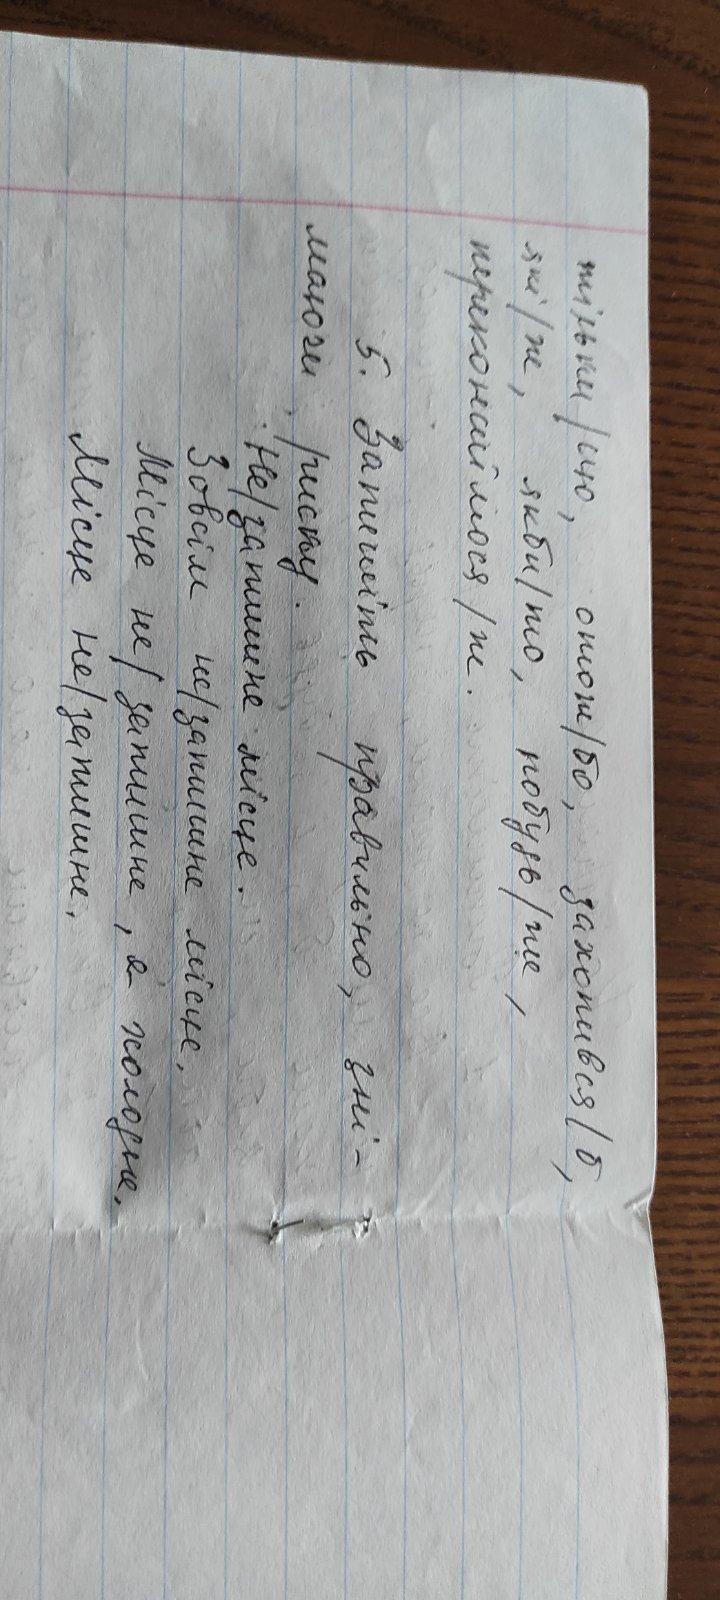 тільки/що, отож/бо, захопився/б,
які/ж, якби/то, побудь/те,
переконаймося/ж.
5. Запишіть правильно, зні-
маючи /риску.
Не/затишне місце.
Зовсім не/затишне місце.
Місце не/затишне, а холодне.
Місце не/затишне.